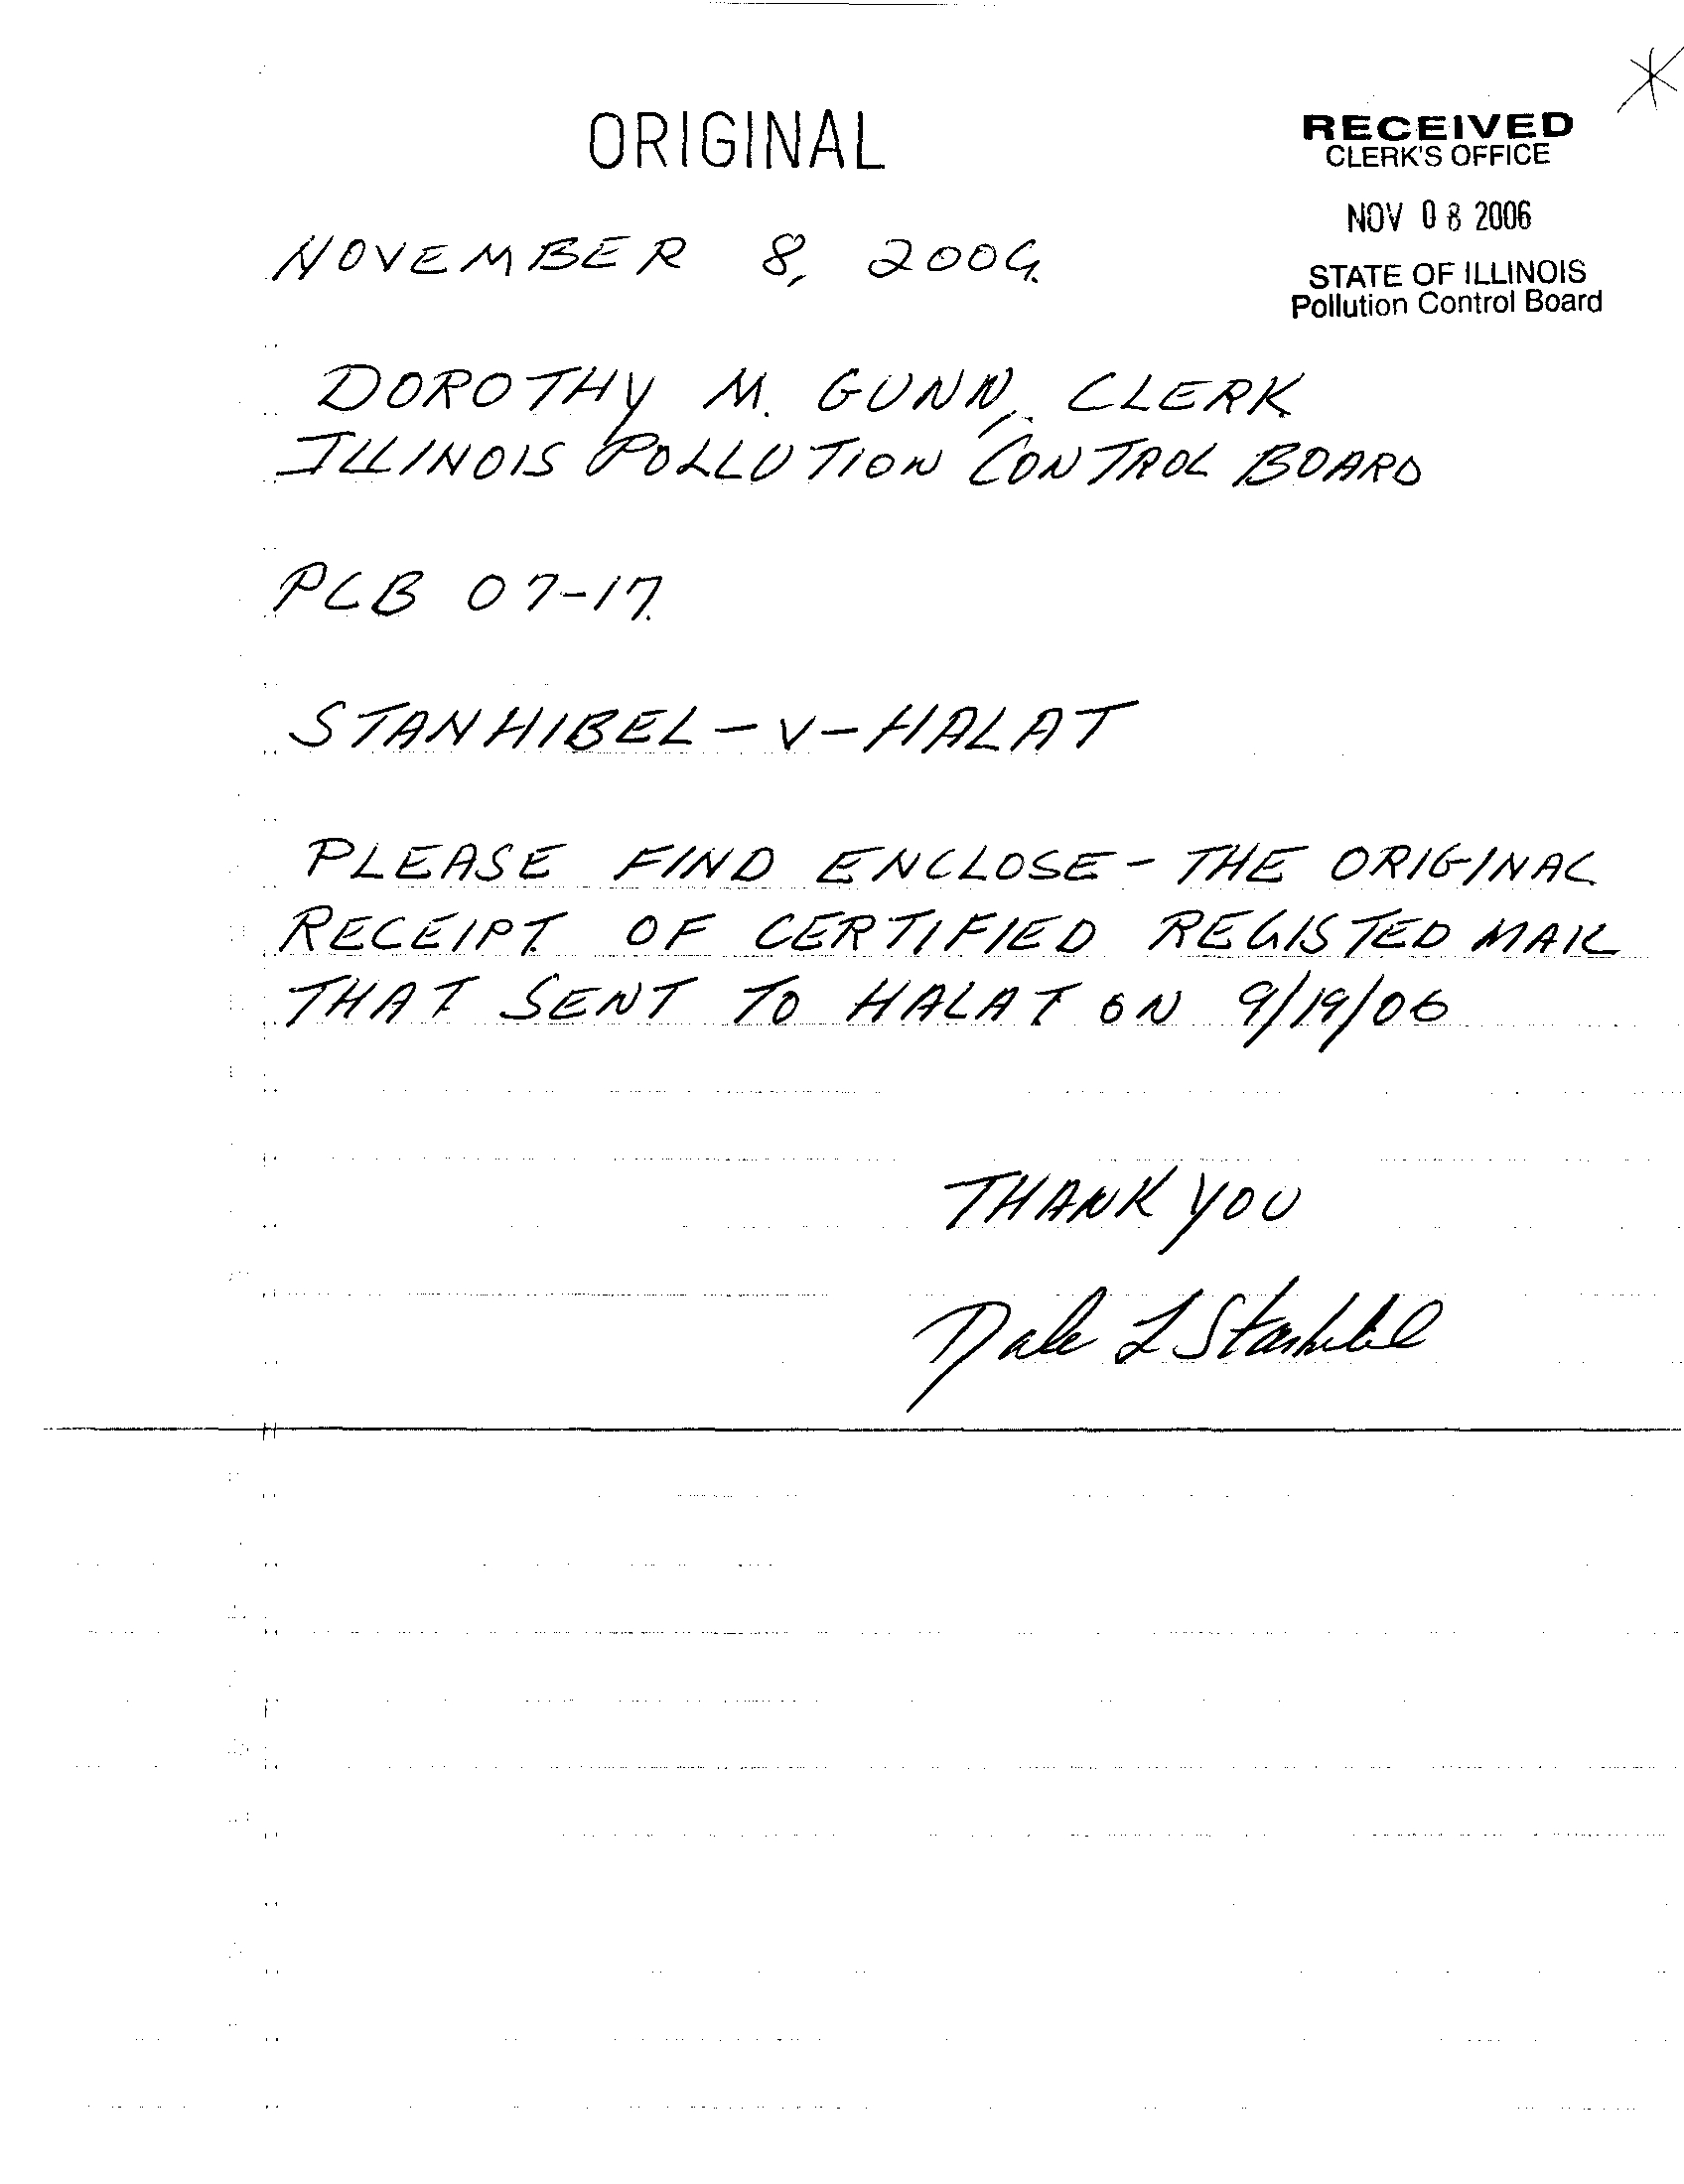 ORIGINAL
RECEIVED
CLERK'S OFFICE
NOV 08 2006
STATE OF ILLINOIS
Pollution Control Board
NOVEMBER 8, 2006.
DOROTHY M. GUNN, CLERK
ILLINOIS POLLUTION CONTROL BOARD
PCB 07-17.
STANHIBEL-V-HALAT
PLEASE FIND ENCLOSE - THE ORIGINAL
RECEIPT OF CERTIFIED REGISTED MAIL
THAT SENT TO HALAT ON 9/19/06
THANK YOU
Dale L Stanhibel